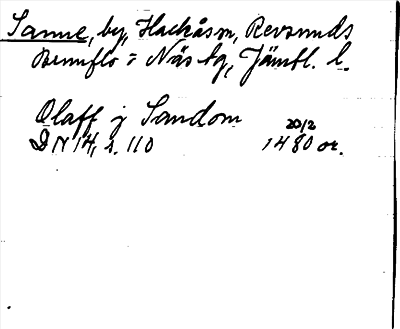 Sanne, by, Hackås sn, Revsunds
Brunflo = Näs tg, Jämtl. l.
Olaff j Sandom 20/2
DN 14, s. 110 1480 or.